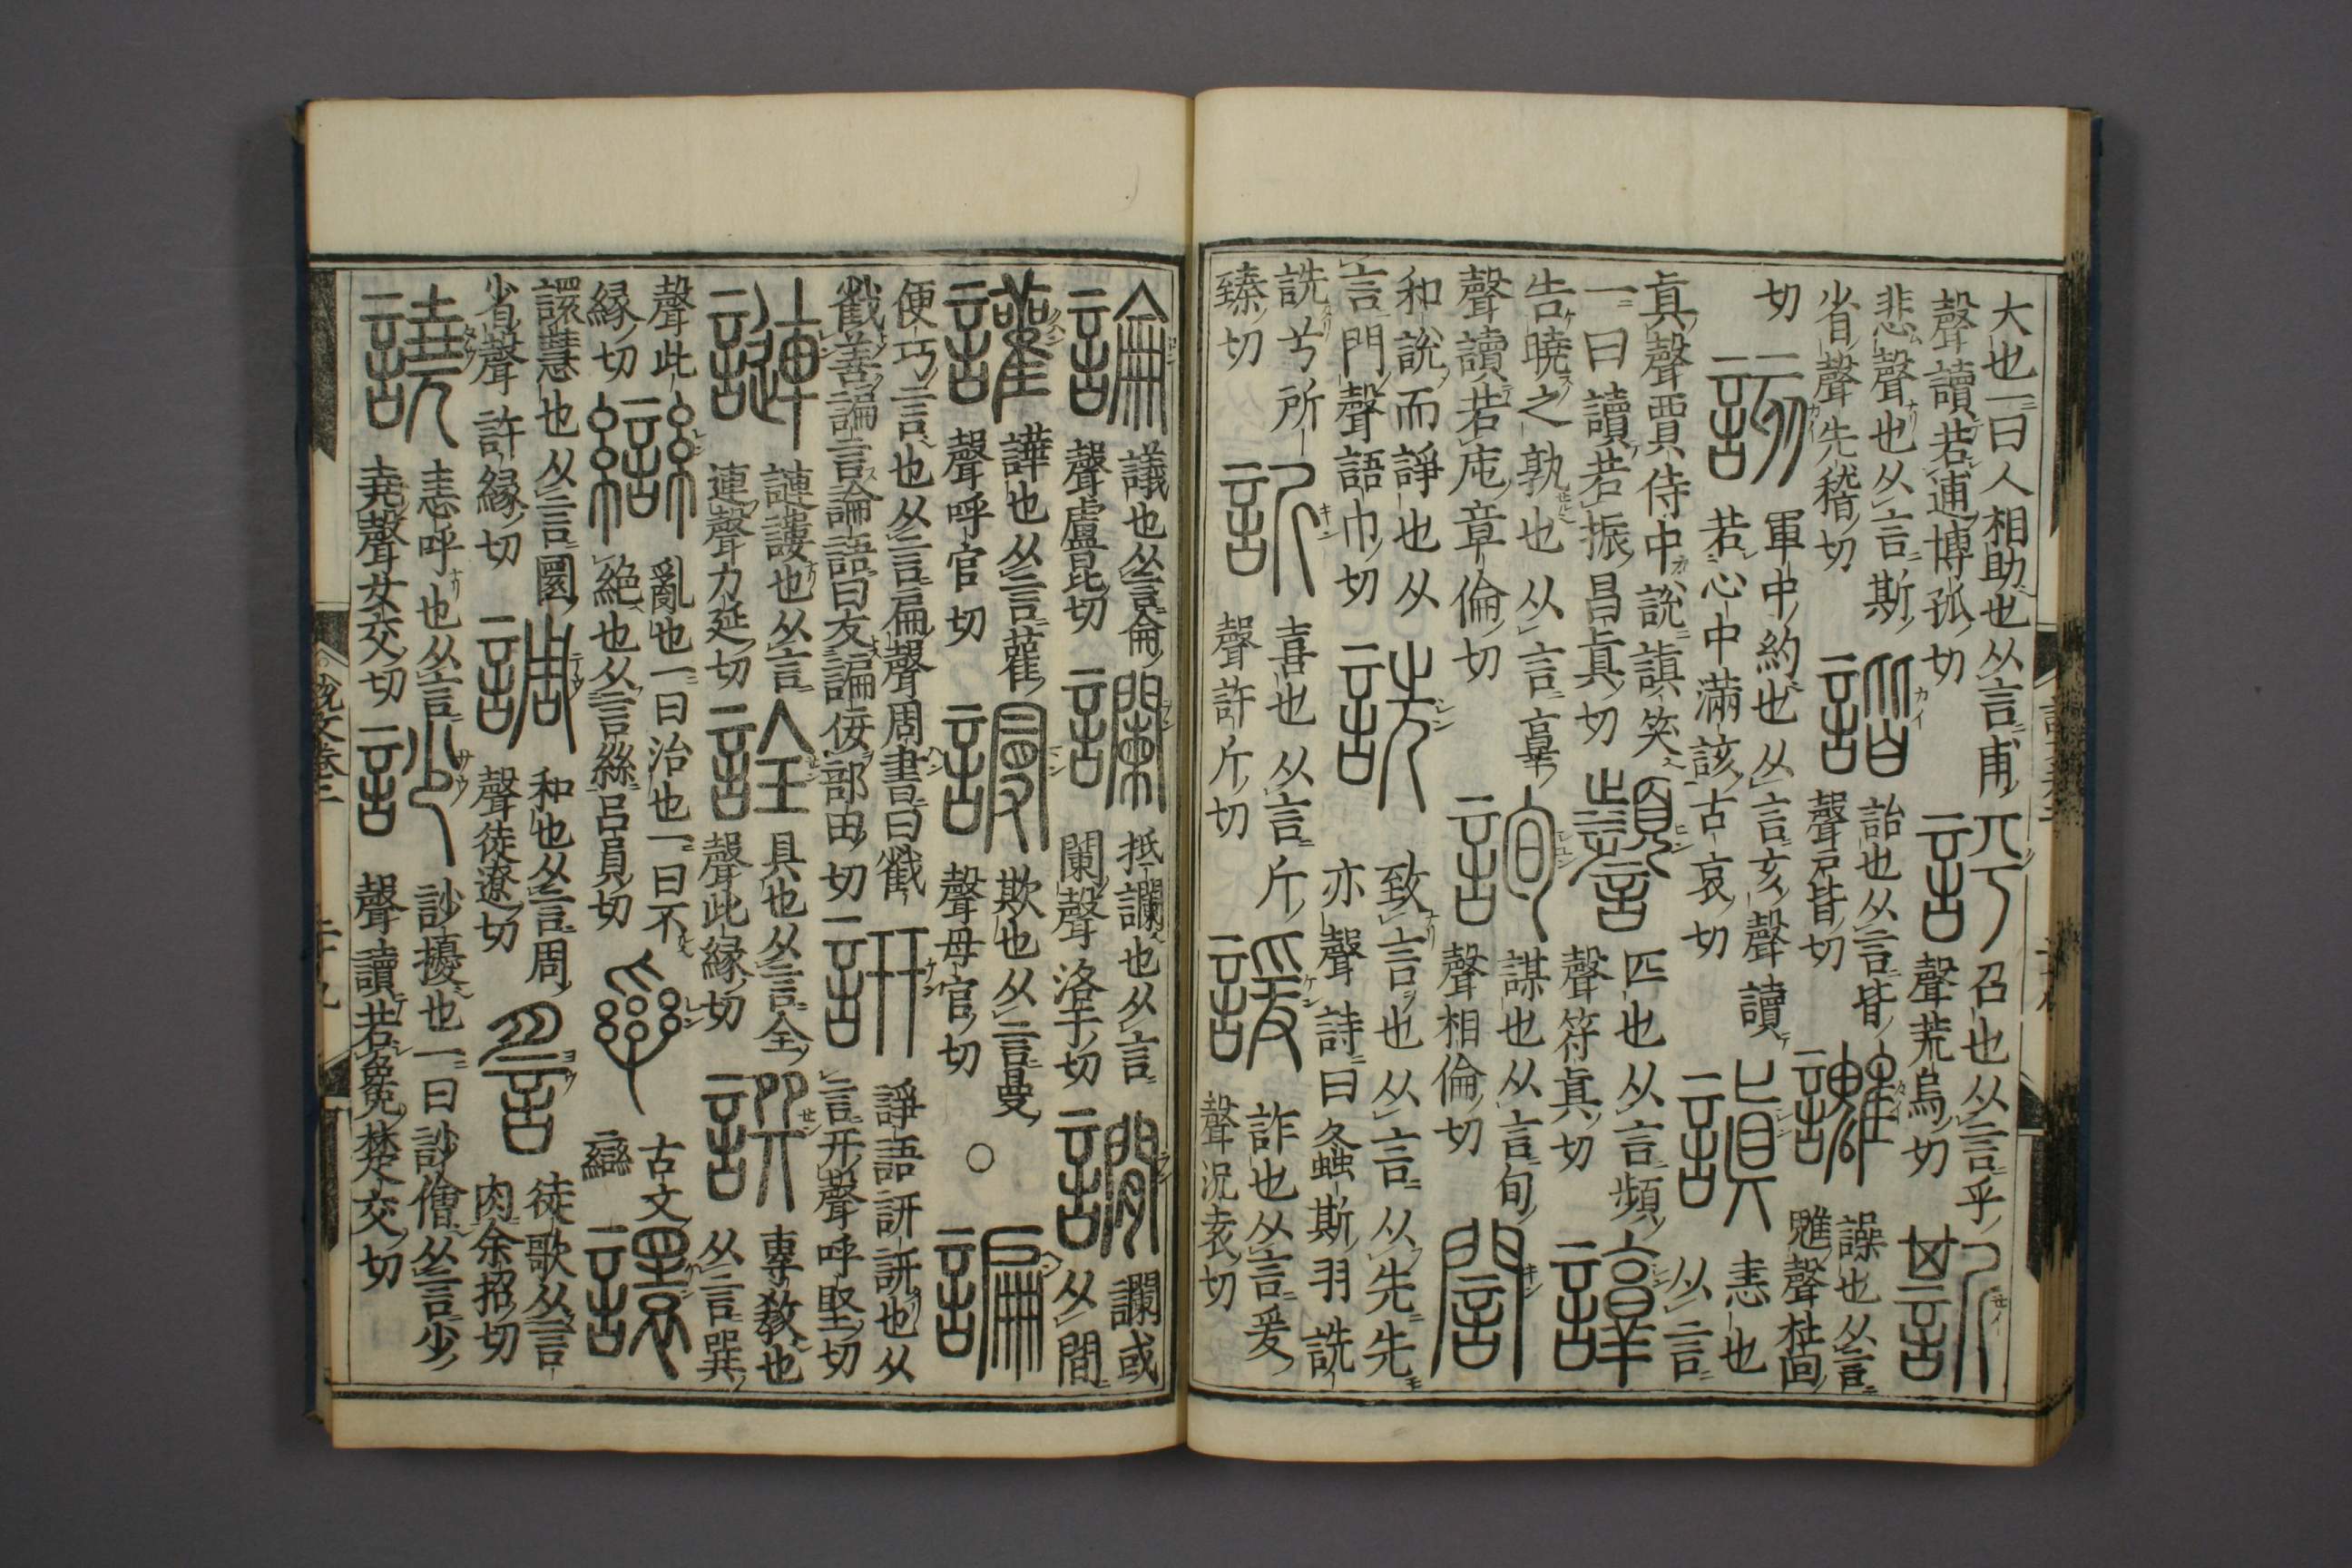 大也一曰人相助也从言甫
聲讀若逋博孤切
評
召也从言乎
聲荒烏切
悲聲也从言斯
省聲先稽切
諧
詥也从言皆
聲戸皆切
譟也从言
魋聲杜回
切
該
軍中約也从言亥聲讀
若心中滿該古哀切
謓
恚也
从言
眞聲賈侍中說謓笑
一曰讀若振昌眞切
匹也从言頻
聲符眞切
諄
告曉之孰也从言𦎧
聲讀若庉章倫切
詢
謀也从言旬
聲相倫切
誾
和說而諍也从
言門聲語巾切
詵
致言也从言从先先
亦聲詩曰螽斯羽詵
詵兮所
臻切
訢
喜也从言斤
聲許斤切
諼
詐也从言爰
聲況袁切
論
議也从言侖
聲盧昆切
讕
抵讕也从言
闌聲洛干切
讕或
从間
讙
譁也从言雚
聲呼官切
謾
欺也从言曼
聲母官切
○
諞
便巧言也从言扁聲周書曰戳
戳善諞言論語曰友諞佞部田切
訮
諍語訮訮也从
言开聲呼堅切
謰
謰謱也从言
連聲力延切
詮
具也从言全
聲此緣切
譔
專敎也
从言巽
聲此
緣切
䜌
亂也一曰治也一曰不
絕也从言絲呂員切
古文
䜌
譞
譞慧也从言圜
省聲許緣切
調
和也从言周
聲徒遼切
䚻
徒歌从言
肉余招切
譊
恚呼也从言
堯聲女交切
訬
訬擾也一曰訬獪从言少
聲讀若毚楚交切
說文卷三
二十九